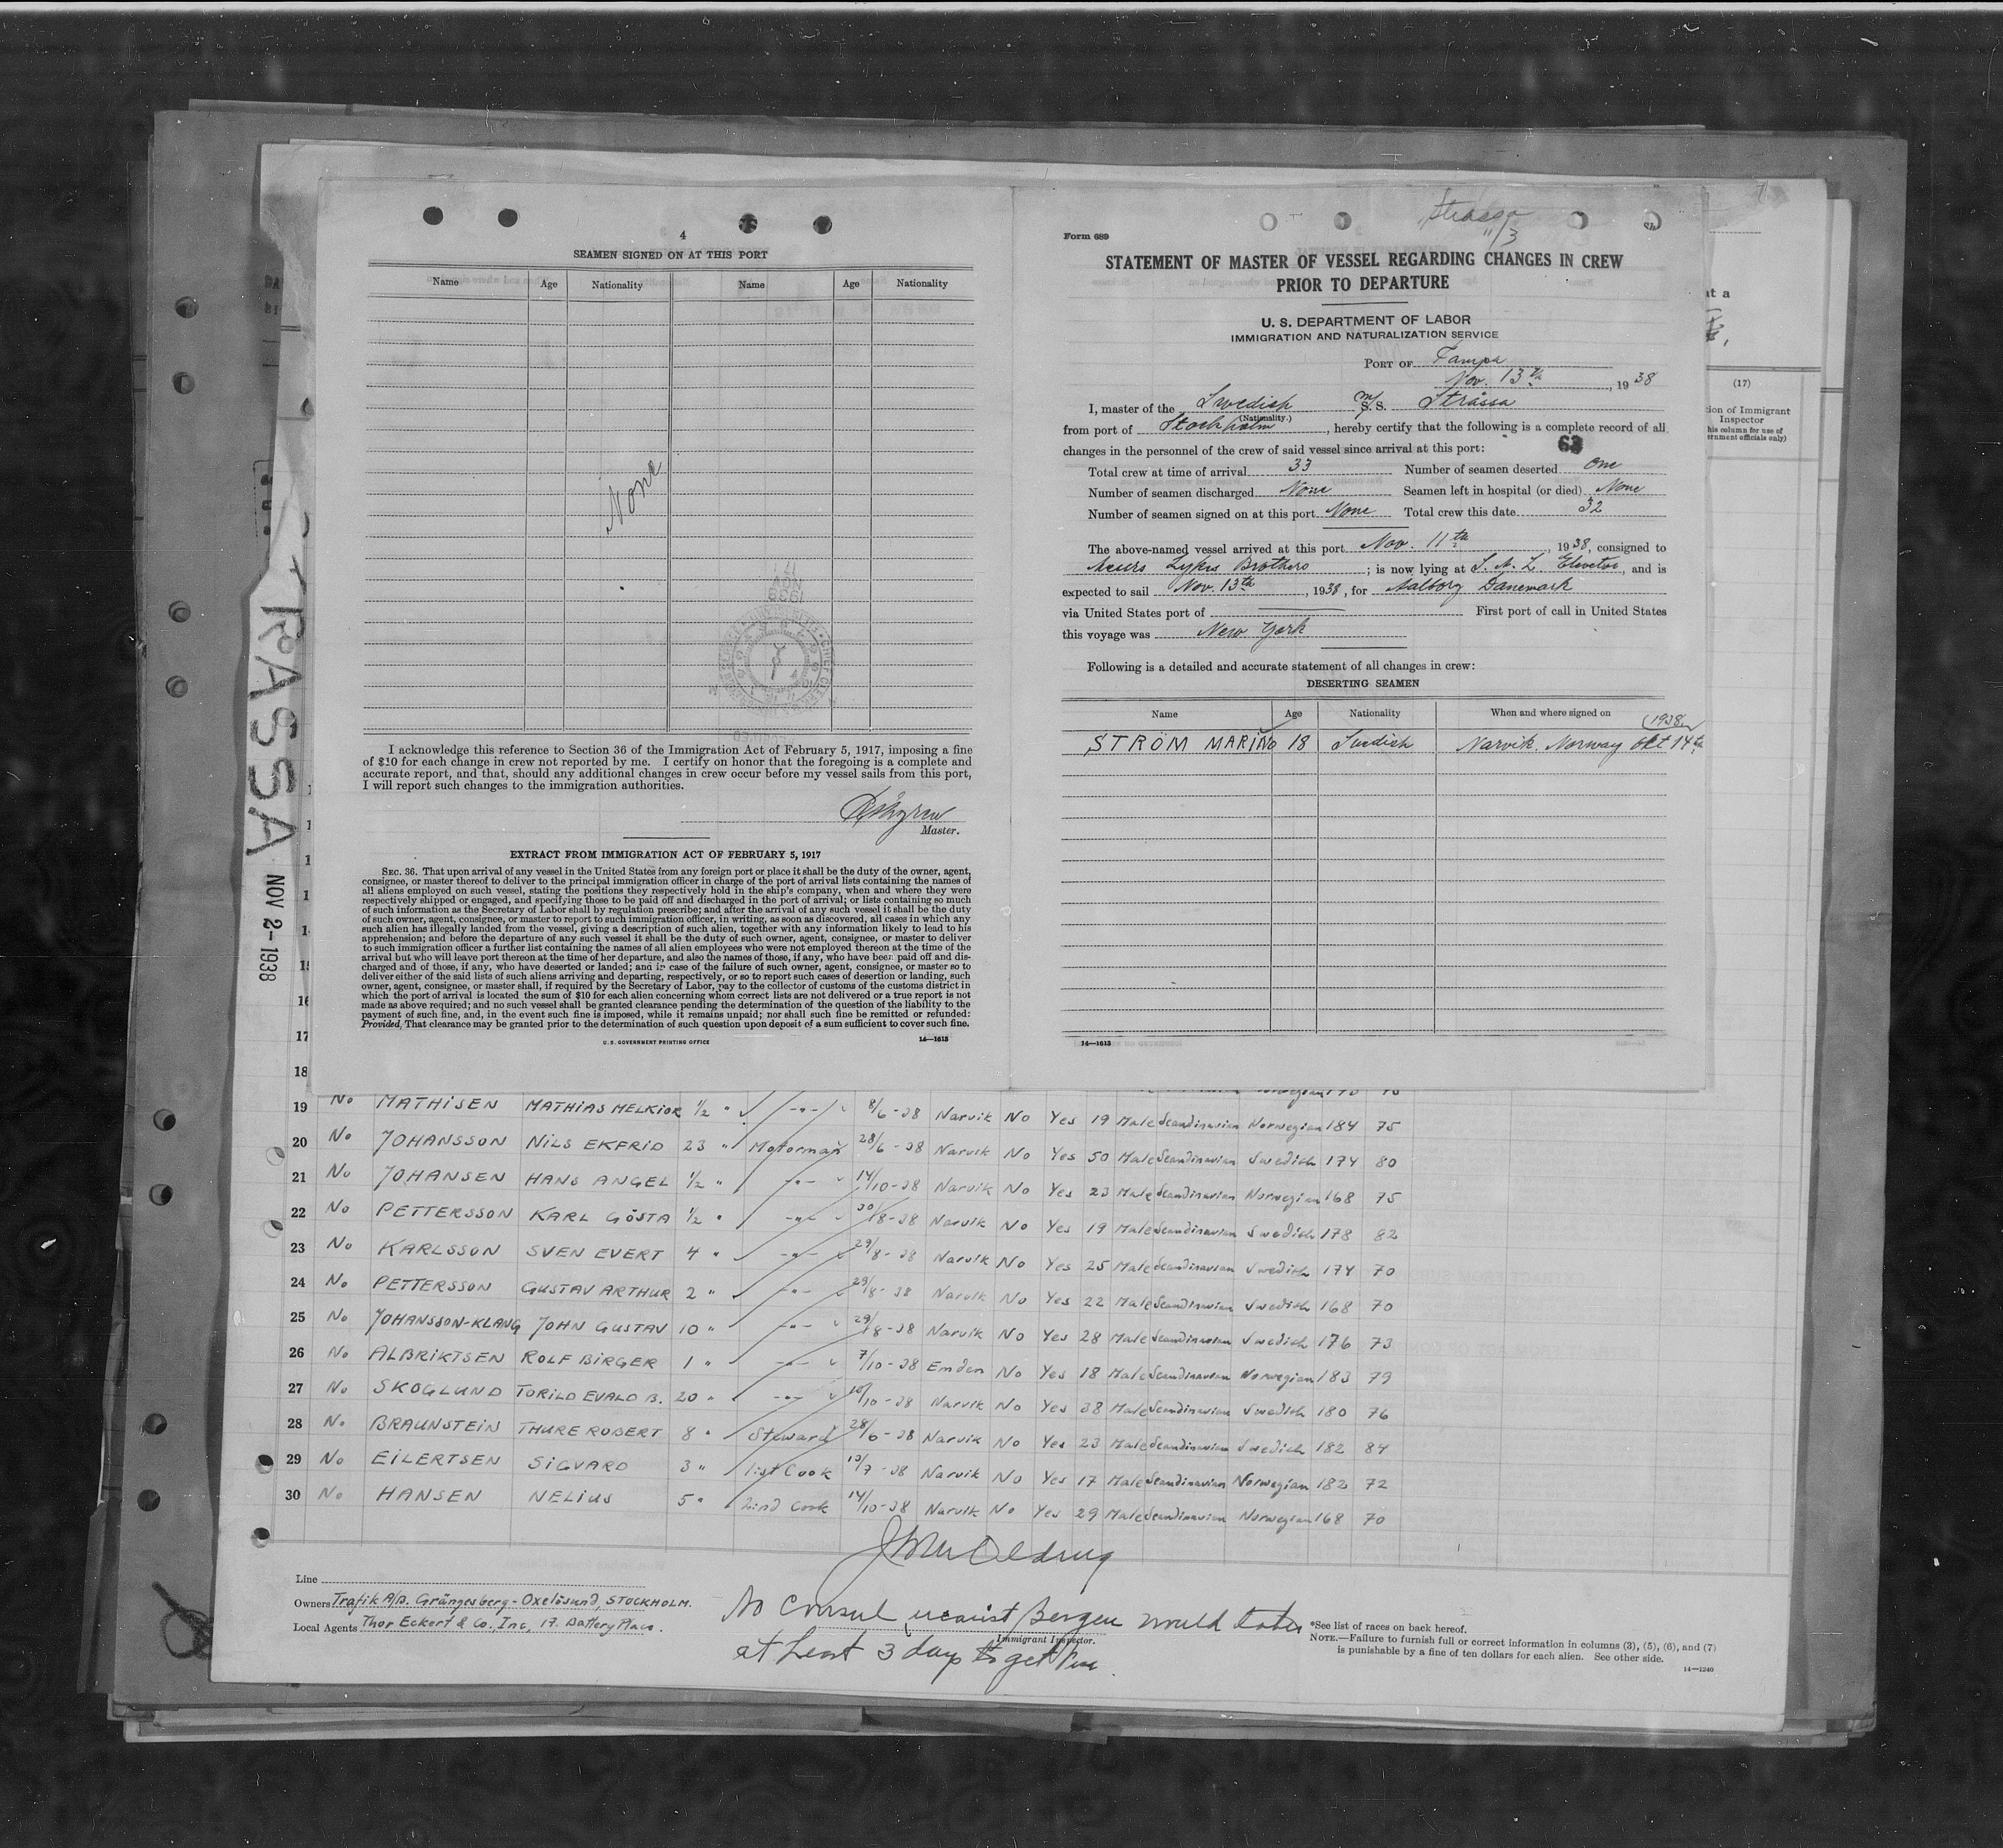 4
SEAMEN SIGNED ON AT THIS PORT
Name Age Nationality Name Age Nationality
None
I acknowledge this reference to Section 36 of the Immigration Act of February 5, 1917, imposing a fine
of $10 for each change in crew not reported by me. I certify on honor that the foregoing is a complete and
accurate report, and that, should any additional changes in crew occur before my vessel sails from this port,
I will report such changes to the immigration authorities.
Master.
EXTRACT FROM IMMIGRATION ACT OF FEBRUARY 5, 1917
SEC. 36. That upon arrival of any vessel in the United States from any foreign port or place it shall be the duty of the owner, agent,
consignee, or master thereof to deliver to the principal immigration officer in charge of the port of arrival lists containing the names of
all aliens employed on such vessel, stating the positions they respectively hold in the ship's company, when and where they were
respectively shipped or engaged, and specifying those to be paid off and discharged in the port of arrival; or lists containing so much
of such information as the Secretary of Labor shall by regulation prescribe; and after the arrival of any such vessel it shall be the duty
of such owner, agent, consignee, or master to report to such immigration officer, in writing, as soon as discovered, all cases in which any
such alien has illegally landed from the vessel, giving a description of such alien, together with any information likely to lead to his
apprehension; and before the departure of any such vessel it shall be the duty of such owner, agent, consignee, or master to deliver
to such immigration officer a further list containing the names of all alien employees who were not employed thereon at the time of the
arrival but who will leave port thereon at the time of her departure, and also the names of those, if any, who have been paid off and dis-
charged and of those, if any, who have deserted or landed; and in case of the failure of such owner, agent, consignee, or master so to
deliver either of the said lists of such aliens arriving and departing, respectively, or so to report such cases of desertion or landing, such
owner, agent, consignee, or master shall, if required by the Secretary of Labor, pay to the collector of customs of the customs district in
which the port of arrival is located the sum of $10 for each alien concerning whom correct lists are not delivered or a true report is not
made as above required; and no such vessel shall be granted clearance pending the determination of the question of the liability to the
payment of such fine, and, in the event such fine is imposed, while it remains unpaid; nor shall such fine be remitted or refunded:
Provided, That clearance may be granted prior to the determination of such question upon deposit of a sum sufficient to cover such fine.
U. S. GOVERNMENT PRINTING OFFICE 14—1613
Strassa
11/3
Form 689
STATEMENT OF MASTER OF VESSEL REGARDING CHANGES IN CREW
PRIOR TO DEPARTURE
U. S. DEPARTMENT OF LABOR
IMMIGRATION AND NATURALIZATION SERVICE
PORT OF Tampa
Nov. 13th, 1938
I, master of the Swedish M/S. S. Stråssa
(Nationality.)
from port of Stockholm, hereby certify that the following is a complete record of all
changes in the personnel of the crew of said vessel since arrival at this port: 63
Total crew at time of arrival 33 Number of seamen deserted One
Number of seamen discharged None Seamen left in hospital (or died) None
Number of seamen signed on at this port None Total crew this date 32
The above-named vessel arrived at this port Nov. 11th, 1938, consigned to
Lykes Brothers; is now lying at S. A. L. Elevator, and is
expected to sail Nov. 13th, 1938, for Aalborg Danemark
via United States port of First port of call in United States
this voyage was New York
Following is a detailed and accurate statement of all changes in crew:
DESERTING SEAMEN
Name Age Nationality When and where signed on
(1938)
STRÖM MARINO 18 Swedish Narvik, Norway Okt 14th
14—1613
at a
(17)
tion of Immigrant
Inspector
his column for use of
ernment officials only)
RASSA NOV 2-1938
16
17
18
19 No MATHISEN MATHIAS MELKIOR 1/2 " -"- 8/6-38 Narvik No Yes 19 Male Scandinavian Norwegian 184 75
20 No JOHANSSON NILS EKFRID 23 " Motorman 28/6-38 Narvik No Yes 50 Male Scandinavian Swedish 174 80
21 No JOHANSEN HANS ANGEL 1/2 " -"- 14/10-38 Narvik No Yes 23 Male Scandinavian Norwegian 168 75
22 No PETTERSSON KARL GÖSTA 1/2 " -"- 30/8-38 Narvik No Yes 19 Male Scandinavian Swedish 178 82
23 No KARLSSON SVEN EVERT 4 " -"- 29/8-38 Narvik No Yes 25 Male Scandinavian Swedish 174 70
24 No PETTERSSON GUSTAV ARTHUR 2 " -"- 29/8-38 Narvik No Yes 22 Male Scandinavian Swedish 168 70
25 No JOHANSSON-KLANG JOHN GUSTAV 10 " -"- 29/8-38 Narvik No Yes 28 Male Scandinavian Swedish 176 73
26 No ALBRIKTSEN ROLF BIRGER 1 " -"- 7/10-38 Emden No Yes 18 Male Scandinavian Norwegian 183 79
27 No SKOGLUND TORILD EVALD B. 20 " -"- 10/10-38 Narvik No Yes 38 Male Scandinavian Swedish 180 76
28 No BRAUNSTEIN THURE ROBERT 8 " Steward 28/6-38 Narvik No Yes 23 Male Scandinavian Swedish 182 84
29 No EILERTSEN SIGVARD 3 " 1ist Cook 13/7-38 Narvik No Yes 17 Male Scandinavian Norwegian 182 72
30 No HANSEN NELIUS 5 " 2ind Cook 14/10-38 Narvik No Yes 29 Male Scandinavian Norwegian 168 70
Line
Owners Trafik A/B. Grängesberg-Oxelösund, STOCKHOLM.
Local Agents Thor Eckert & Co., Inc, 17. Battery Place.
No Consul nearest Bergen would take
Immigrant Inspector.
at least 3 days to get
*See list of races on back hereof.
NOTE.—Failure to furnish full or correct information in columns (3), (5), (6), and (7)
is punishable by a fine of ten dollars for each alien. See other side.
14—1240